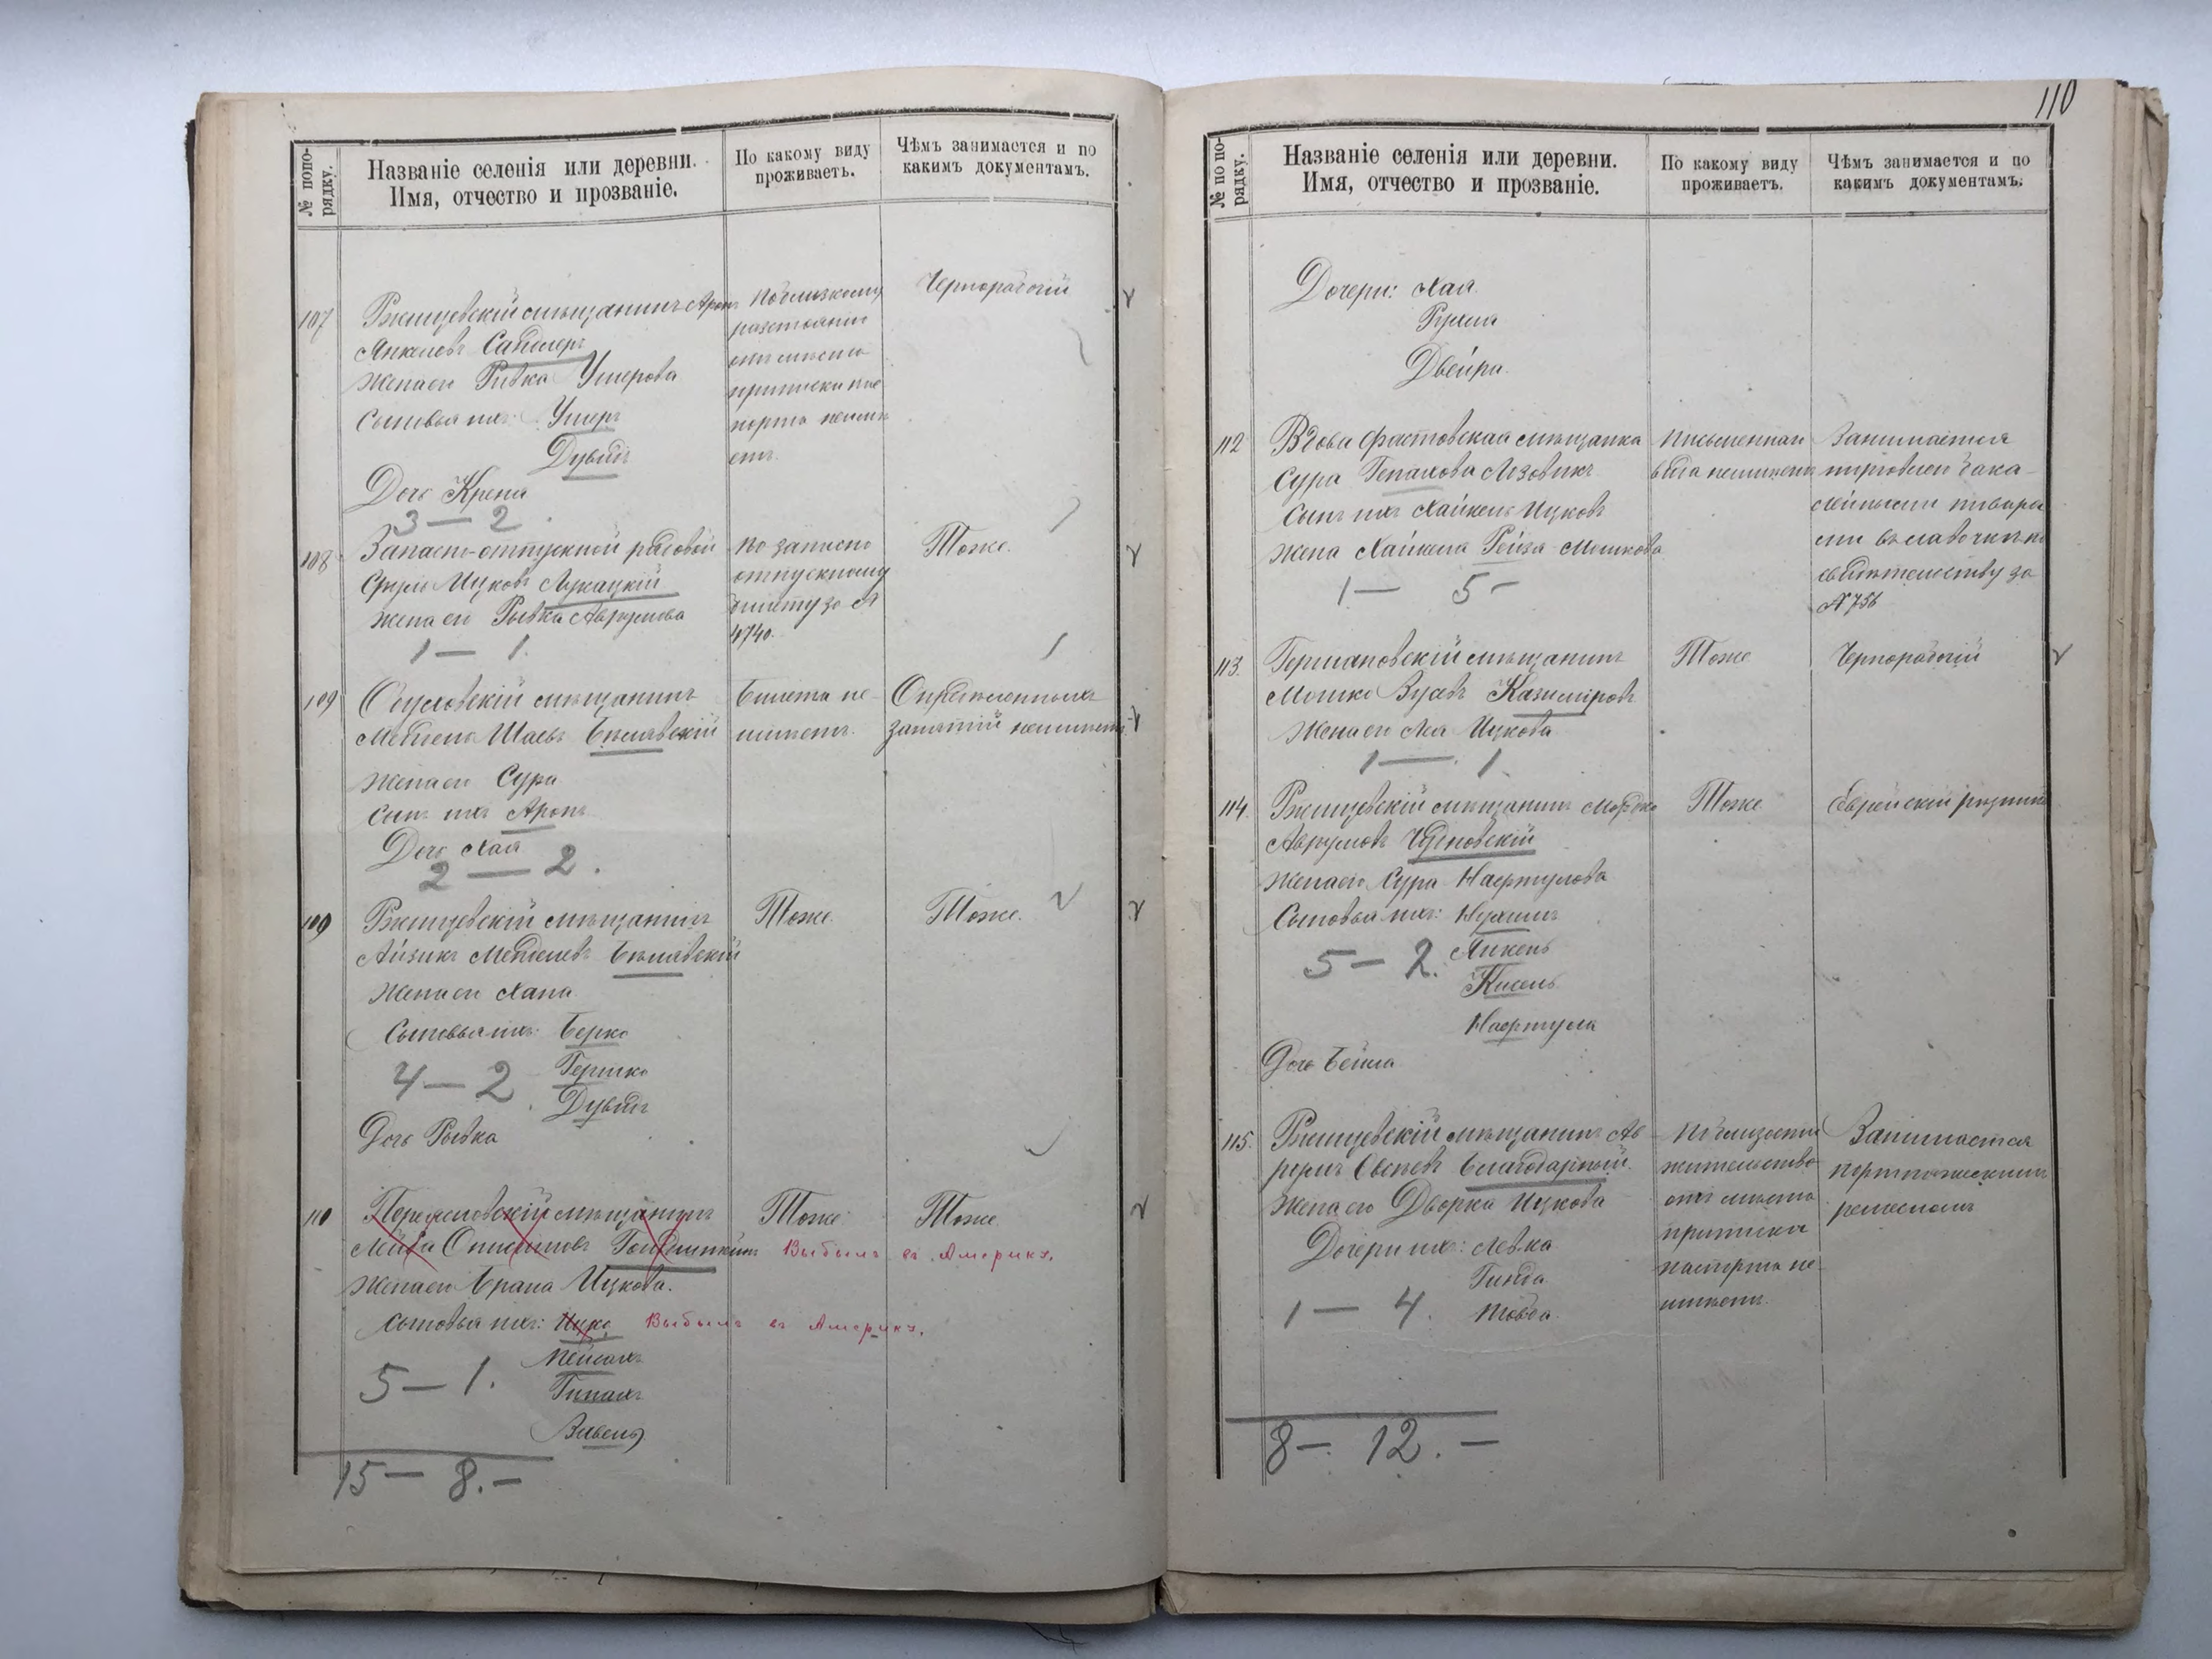 № попо-
рядку.
Названіе селенія или деревни.
Имя, отчество и прозваніе.
По какому виду
проживаетъ.
Чѣмъ занимается и по
какимъ документамъ.
107
Ржищевскій мѣщанинъ Аронъ
Янкелевъ
Жена его Ривка Ушерова
Сыновья ихъ: Ушеръ
Дувидъ
Дочь Крейна
3 — 2
По близкому
разстоянію
отъ мѣста
приписки пас
порта неимѣ
етъ.
Чернорабочій
108
Запасно-отпускной рядовой
Сруль Ицковъ Лукацкій
Жена его Рывка Аврумова
1 — 1.
По запасно
отпускному
билету за №
4740.
Тоже.
109
мѣщанинъ
Мендель Шаевъ Бѣлявскій
Жена его Сура
Сынъ ихъ Аронъ
Дочь Хая
2 — 2.
Билета не-
имѣетъ.
Опредѣленныхъ
занятій неимѣетъ
109
Ржищевскій мѣщанинъ
Айзикъ Менделевъ Бѣлявскій
Жена его Хана
Сыновья ихъ: Берко
Гершко
4 — 2
Дувидъ
Дочь Рывка
Тоже.
Тоже.
110
мѣщанинъ
Жена его Брана Ицкова.
Сыновья ихъ: Ицко
Выбылъ въ Америку.
Пейсахъ
5 — 1.
Вавель
Тоже
Тоже
Выбылъ въ Америку.
15 — 8. —
110
№ по по-
рядку.
Названіе селенія или деревни.
Имя, отчество и прозваніе.
По какому виду
проживаетъ.
Чѣмъ занимается и по
какимъ документамъ.
Дочери: Хая
Рухля
Двейра.
112
Вдова Фастовская мѣщанка
Сура Лозовикъ
Сынъ ихъ Хайкель Ицковъ
Жена Хайкеля Рейза Мошкова
1 — 5 —
Письменнаго
вида неимѣетъ
Занимается
торговлей бака-
лейными товара
ми въ лавочкѣ по
свидѣтельству за
№ 756
113.
Германовскій мѣщанинъ
Мошко Зусевъ Казиміровъ
Жена его Лея Ицкова
1 — 1.
Тоже
Чернорабочій
114.
Ржищевскій мѣщанинъ Мордко
Аврумовъ Чудновскій
Жена его Сура Нафтулова
Сыновья ихъ: Нухимъ
Янкель
5 — 2.
Кисель
Нафтула
Дочь Бейла
Тоже
Еврейскій рѣзникъ
115.
Ржищевскій мѣщанинъ Ав-
Благодарный.
Жена его Дворка Ицкова
Дочери ихъ: Левка
Гинда
1 — 4.
Товба
По близости
жительства
отъ мѣста
приписки
паспорта не-
имѣетъ.
Занимается
портняжескимъ
ремесломъ
8 — 12. —